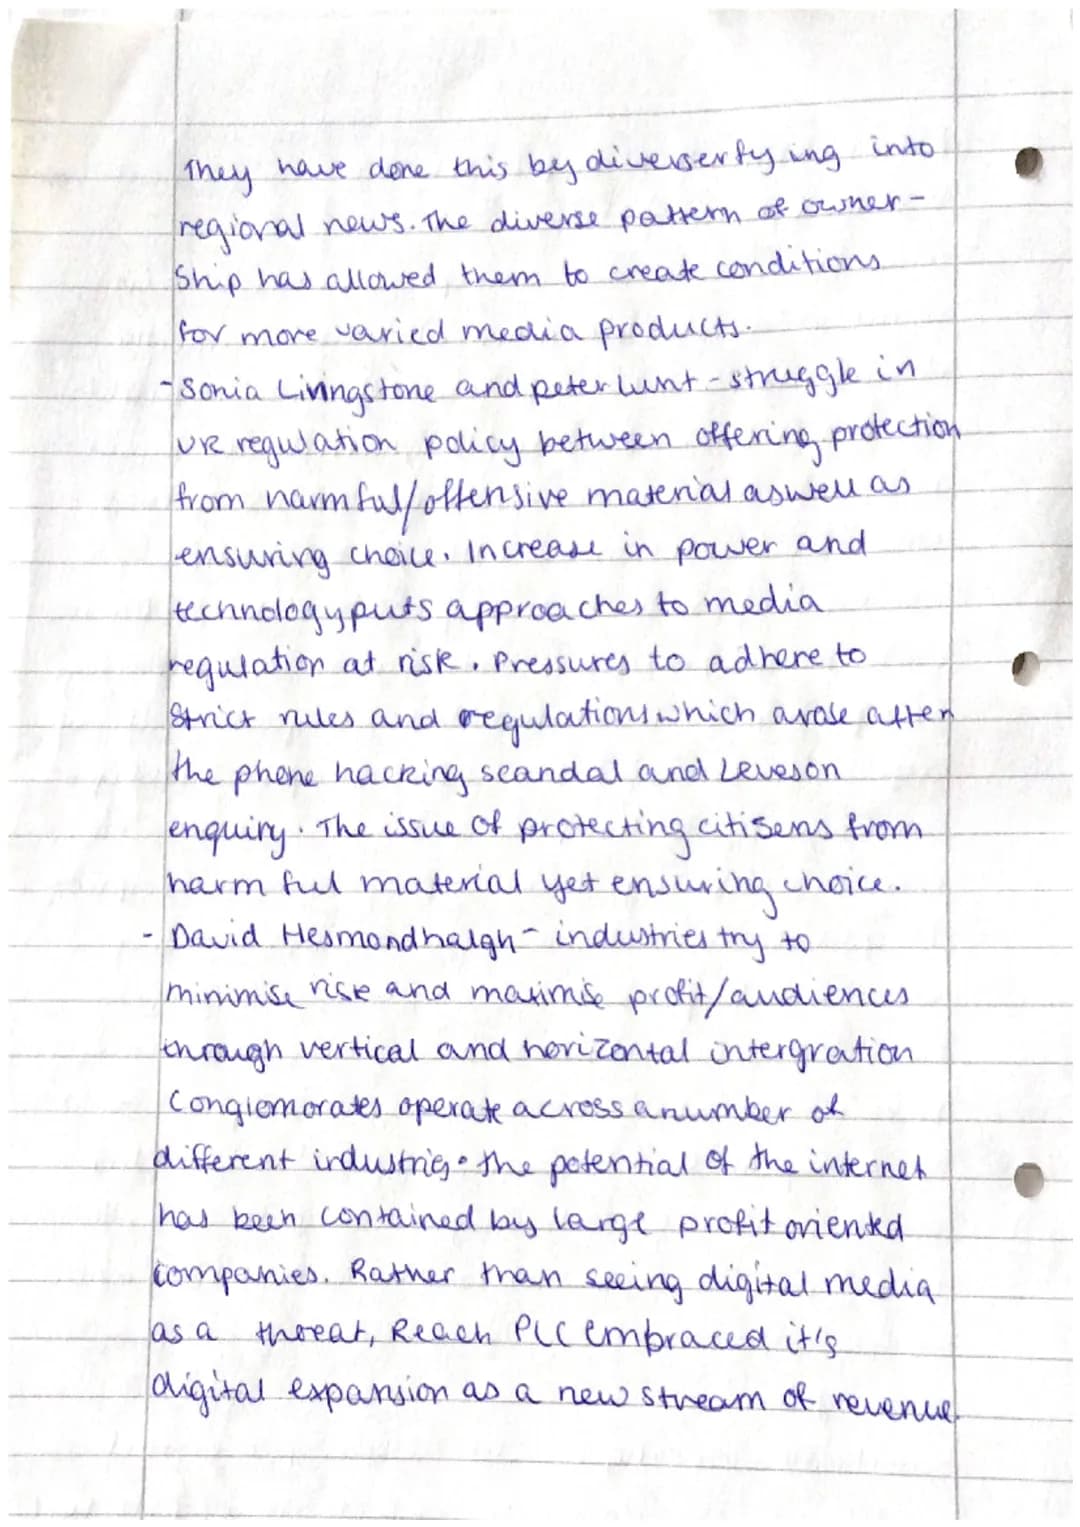 They have done this by diverserfying into
regional news. The diverse pattern of owner-
ship has allowed them to create conditions
for more varied media products.
- Sonia Livingstone and peter lunt - struggle in
UK regulation policy between offering protection
from harmful/offensive material aswell as
ensuring choice. Increase in power and
technology puts approaches to media
regulation at risk. Pressures to adhere to
strict rules and regulations which arose after
the phone hacking scandal and Leveson
enquiry. The issue of protecting citisens from
harmful material yet ensuring choice.
- David Hesmondhalgh - industries try to
minimise risk and maximise profit/audiences
through vertical and horizontal intergration
Conglomorates operate across a number of
different industries. The potential of the internet
has been contained by large profit oriented
companies. Rather than seeing digital media
as a threat, Reach PLC embraced it's
digital expansion as a new stream of revenue.